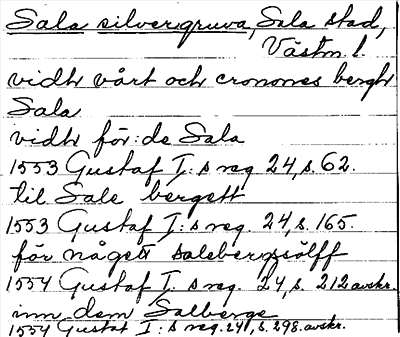 Sala silvergruva, Sala stad,
Västm. l.
vidh vårt och cronones bergh
Sala
vidh för: de Sala
1553 Gustaf I: s reg. 24, s. 62.
til Sale bergett
1553 Gustaf I: s reg. 24, s. 165.
för någett salebergsölff
1554 Gustaf I. s reg. 24, s. 212 avskr.
inn dem Salberge
1554 Gustaf I: s reg. 24, s. 298. avskr.